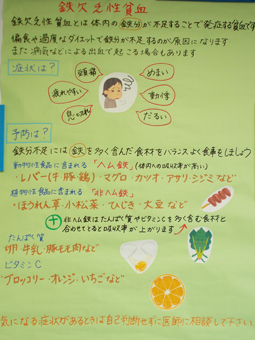 鉄欠乏性貧血
鉄欠乏性貧血とは体内の鉄分が不足することで発症する貧血です
偏食や過度なダイエットで鉄分が不足するのが原因になります
また病気などによる出血で起こる場合もあります
症状は?
頭痛
めまい
疲れやすい
動悸
息切れ
だるい
予防は?
鉄分不足には鉄を多く含んだ食材をバランスよく食事をしましょう
動物性食品に含まれる「ヘム鉄」(体内への吸収率が高い)
・レバー(牛豚鶏)・マグロ カツオ・アサリ シジミ など
植物性食品に含まれる「非ヘム鉄」
・ほうれん草・小松菜・ひじき・大豆 など
+ 非ヘム鉄はたんぱく質やビタミンCを多く含む食材と
合わせてとると吸収率が上がります
たんぱく質
卵・牛乳・豚もも肉など
ビタミンC
ブロッコリー・オレンジ・いちごなど
気になる症状があるときは自己判断せずに医師に相談して下さい